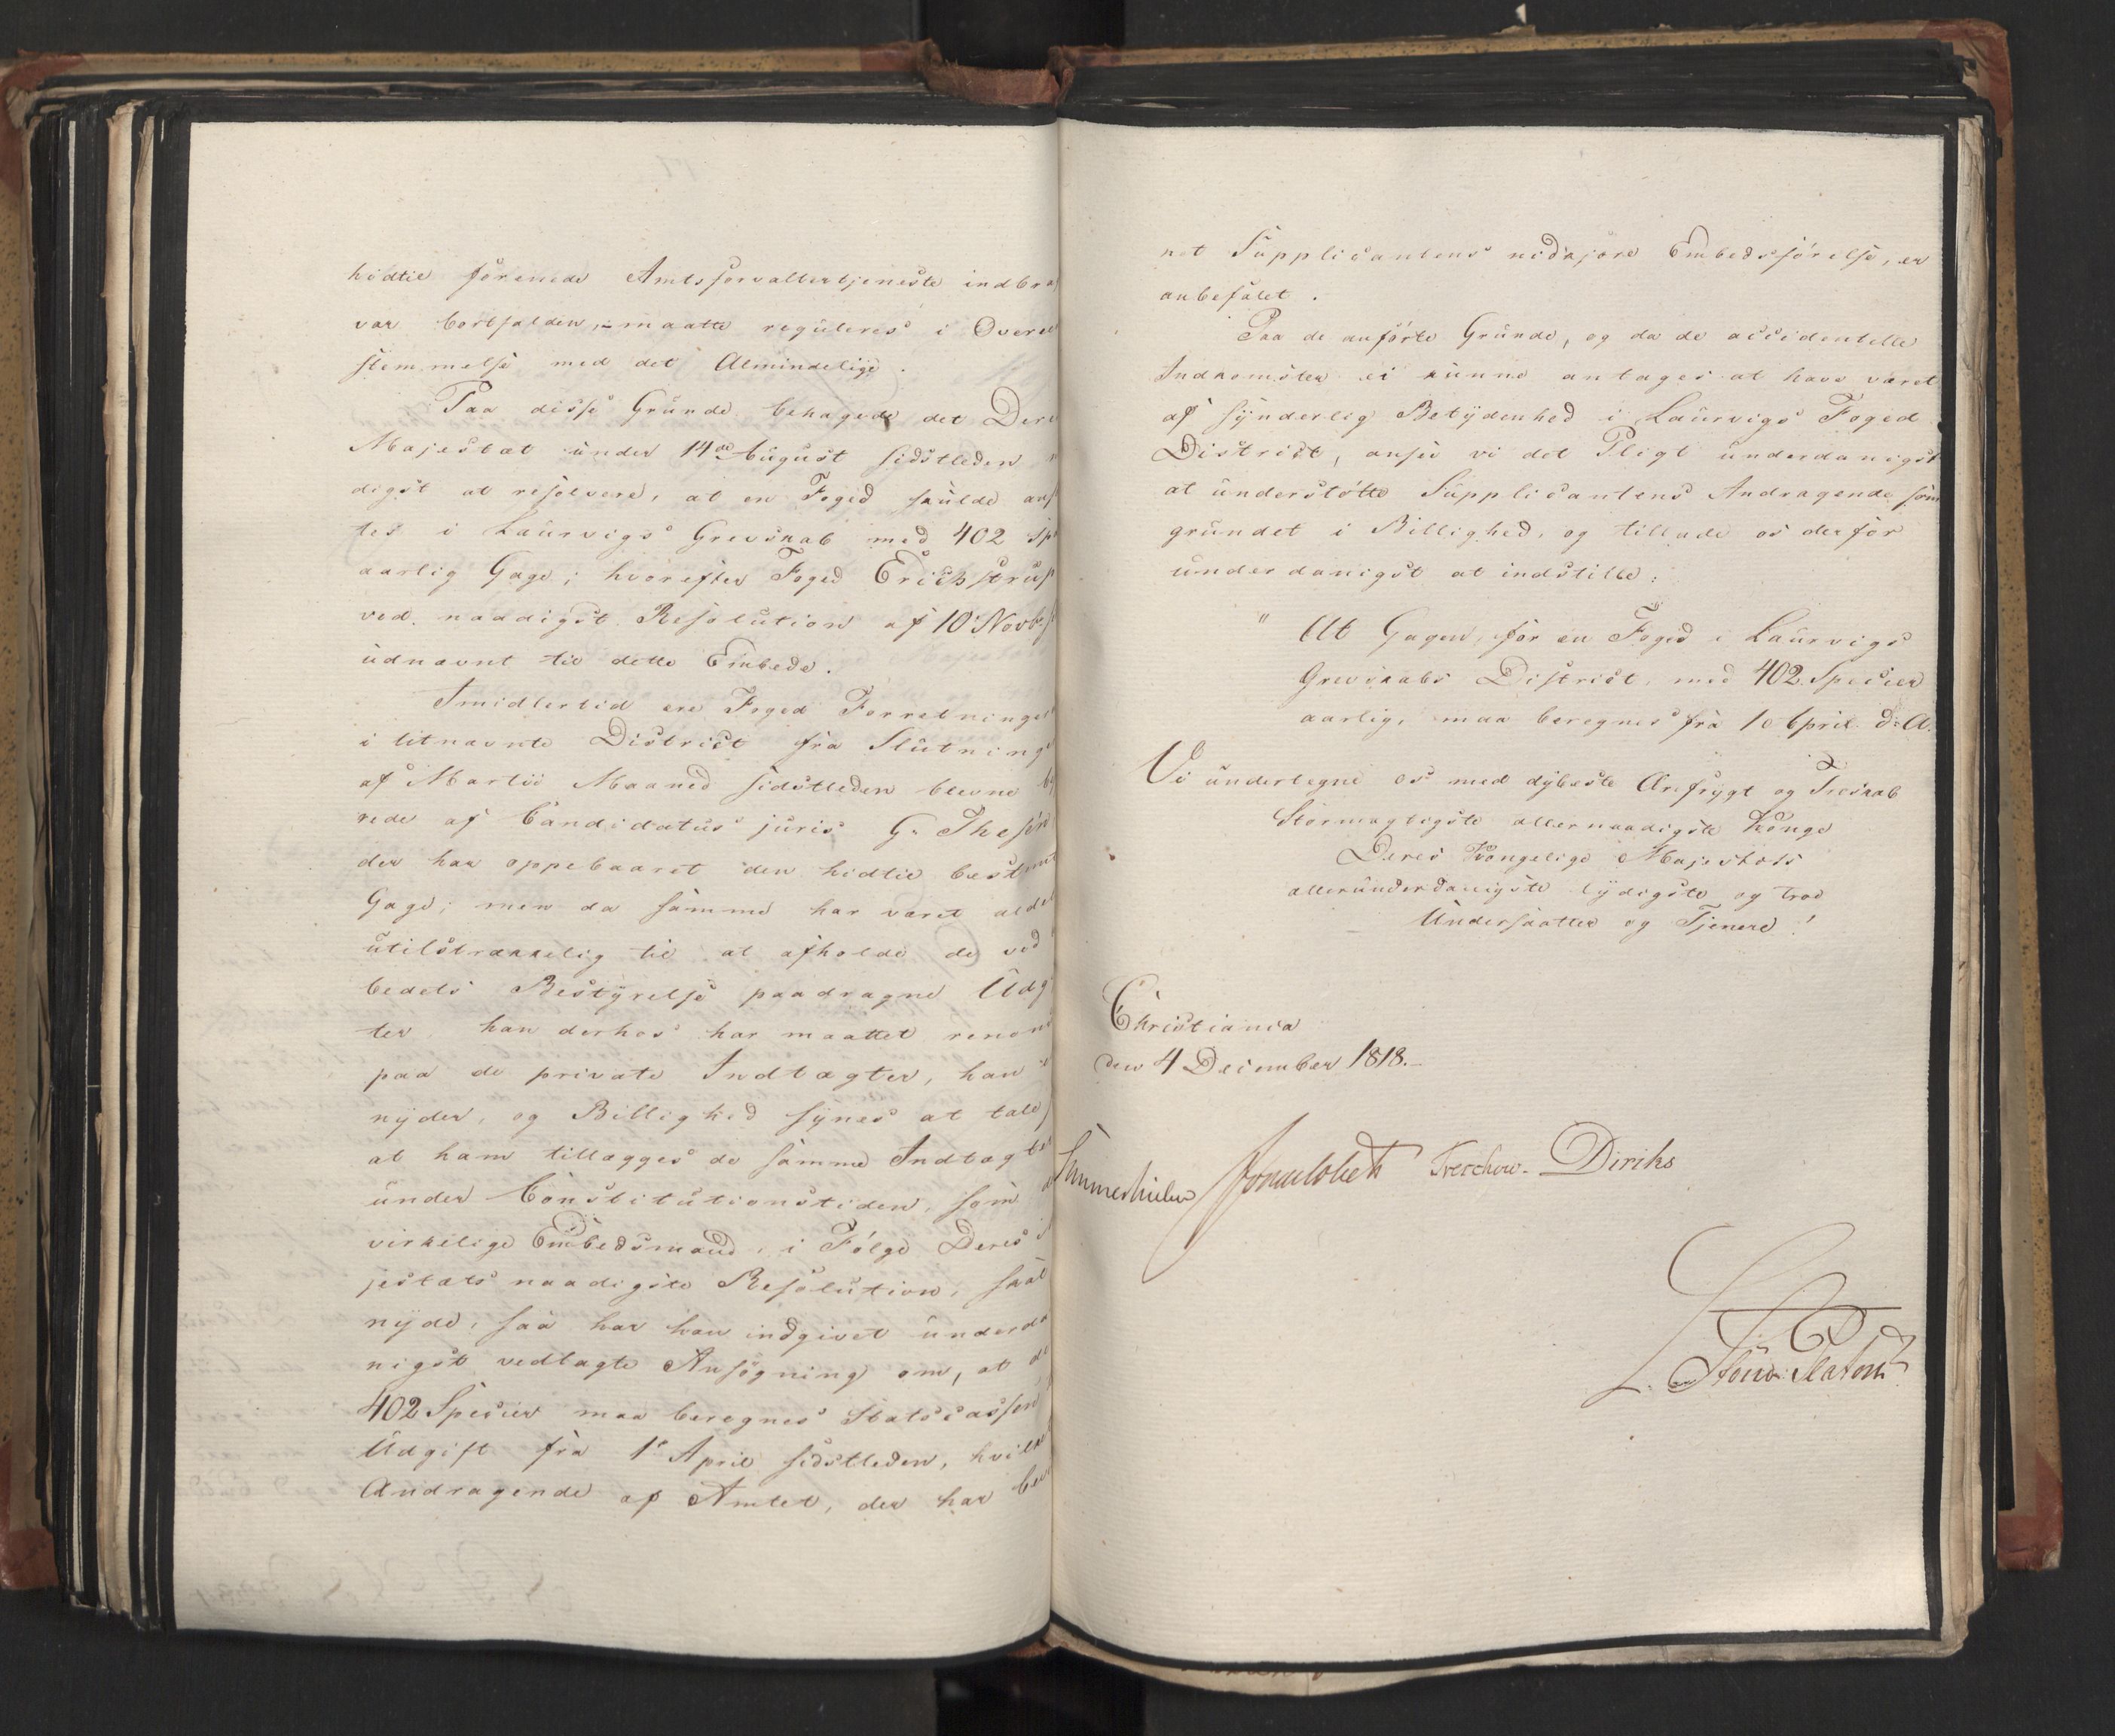 hidtil forenede Amtsforvaltertjeneste indbra
var bortfalden, maatte reguleres i Overe
stemmelse med det Almindelige.
Paa disse Grunde behagede det Dere
Majestæt under 14de August sidstleden
digst at resolvere, at en Foged skulde ans
tes i Laurvigs Grevskab med 402 Sp
aarlig Gage; hvorefter Foged Erichstrup
ved naadigst Resolution af 10 Novbr
udnævnt til dette Embede.
Imidlertid ere Foged Forretninge
i bitnævnte District fra Slutning
af Martii Maaned sidstleden blevne be
rede af Candidatus juris G. Thesen
der har oppebaaret den hidtil bestemt
Gage; men da samme har været aldel
utilstrækkelig til at afholde de ved
bedets Bestyrelse paadragne Udg
ter han derhos har maattet renon
paa de private Indtægter, han
nyder, og Billighed synes at tale
at ham tillægges de samme Indtægter
under Constitutionstiden, som
virkelige Embedsmand, i Følge Deres
jestæts naadigste Resolution, skal
nyde, saa har han indgivet underda
nigst vedlagte Ansøgning om, at de
402 Species maa beregnes Statscassen
Udgift fra 1e April sidstleden, hvilket
Andragende af Amtet, der har bevi
net Supplicantens nidkjære Embedsførelse, er
anbefalet.
Paa de anførte Grunde, og da de accidentelle
Indkomster ei kunne antages at have været
af synderlig Betydenhed i Laurvigs Foged
District, ansee vi det Pligt underdanigst
at understøtte Supplicantens Andragende som
grundet i Billighed, og tillade os derfor
underdanigst at indstille:
" At Gagen, for en Foged i Laurvigs
Grevskabs District, med 402 Species
aarlig, maa beregnes fra 1e April d: A.
Vi undertegne os med dybeste Ærefrygt og Troskab
Stormægtigste allernaadigste Konge
Deres Kongelige Majestæts
allerunderdanigste lydigste og troe
Undersaatter og Tjenere!
Christiania
den 4 December 1818.
Sommerhielm Jonas Collett Treschow. Diriks
L. Stoud Platou